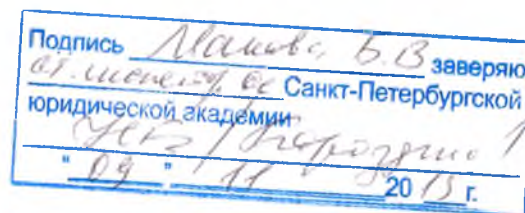 Подпись Макова Б.В заверяю
ст. инспектор ОК Санкт-Петербургской
юридической академии
"09" 11 2015 г.